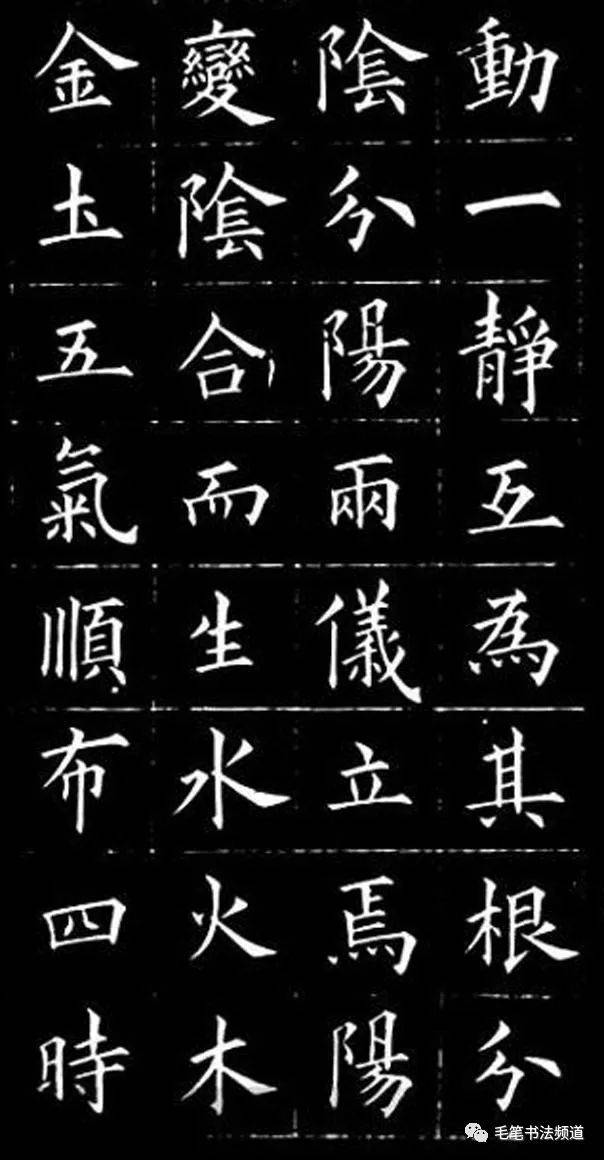 動一靜互為其根分
陰分陽兩儀立焉陽
變陰合而生水火木
金土五氣順布四時
毛笔书法频道